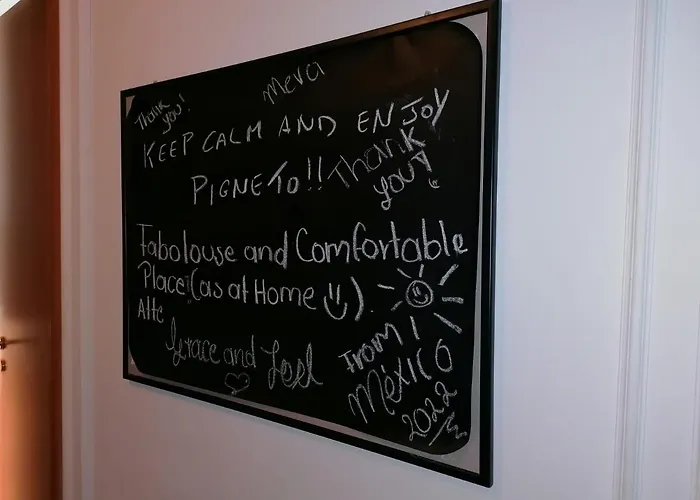 Merci
Thank
you!
KEEP CALM AND ENJOY
PIGNETO!!
Thank
you!
Fabolouse and Comfortable
Place! (as at Home
Atte
Grace and
From!
México
2022